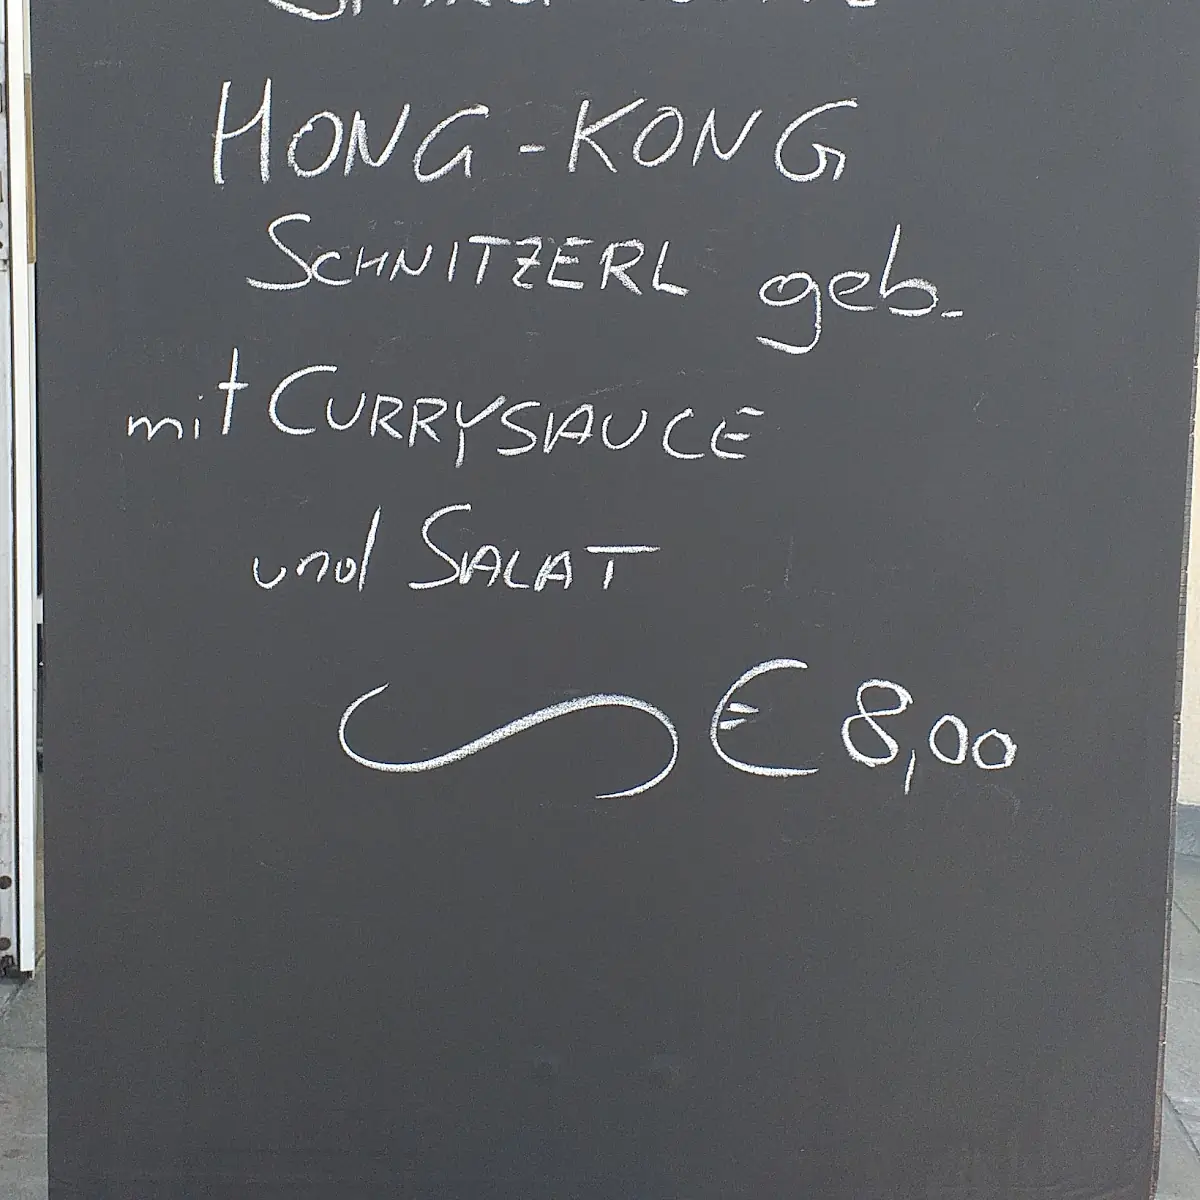 HONG-KONG
SCHNITZERL geb.
mit CURRYSAUCE
und SALAT
€ 8,00